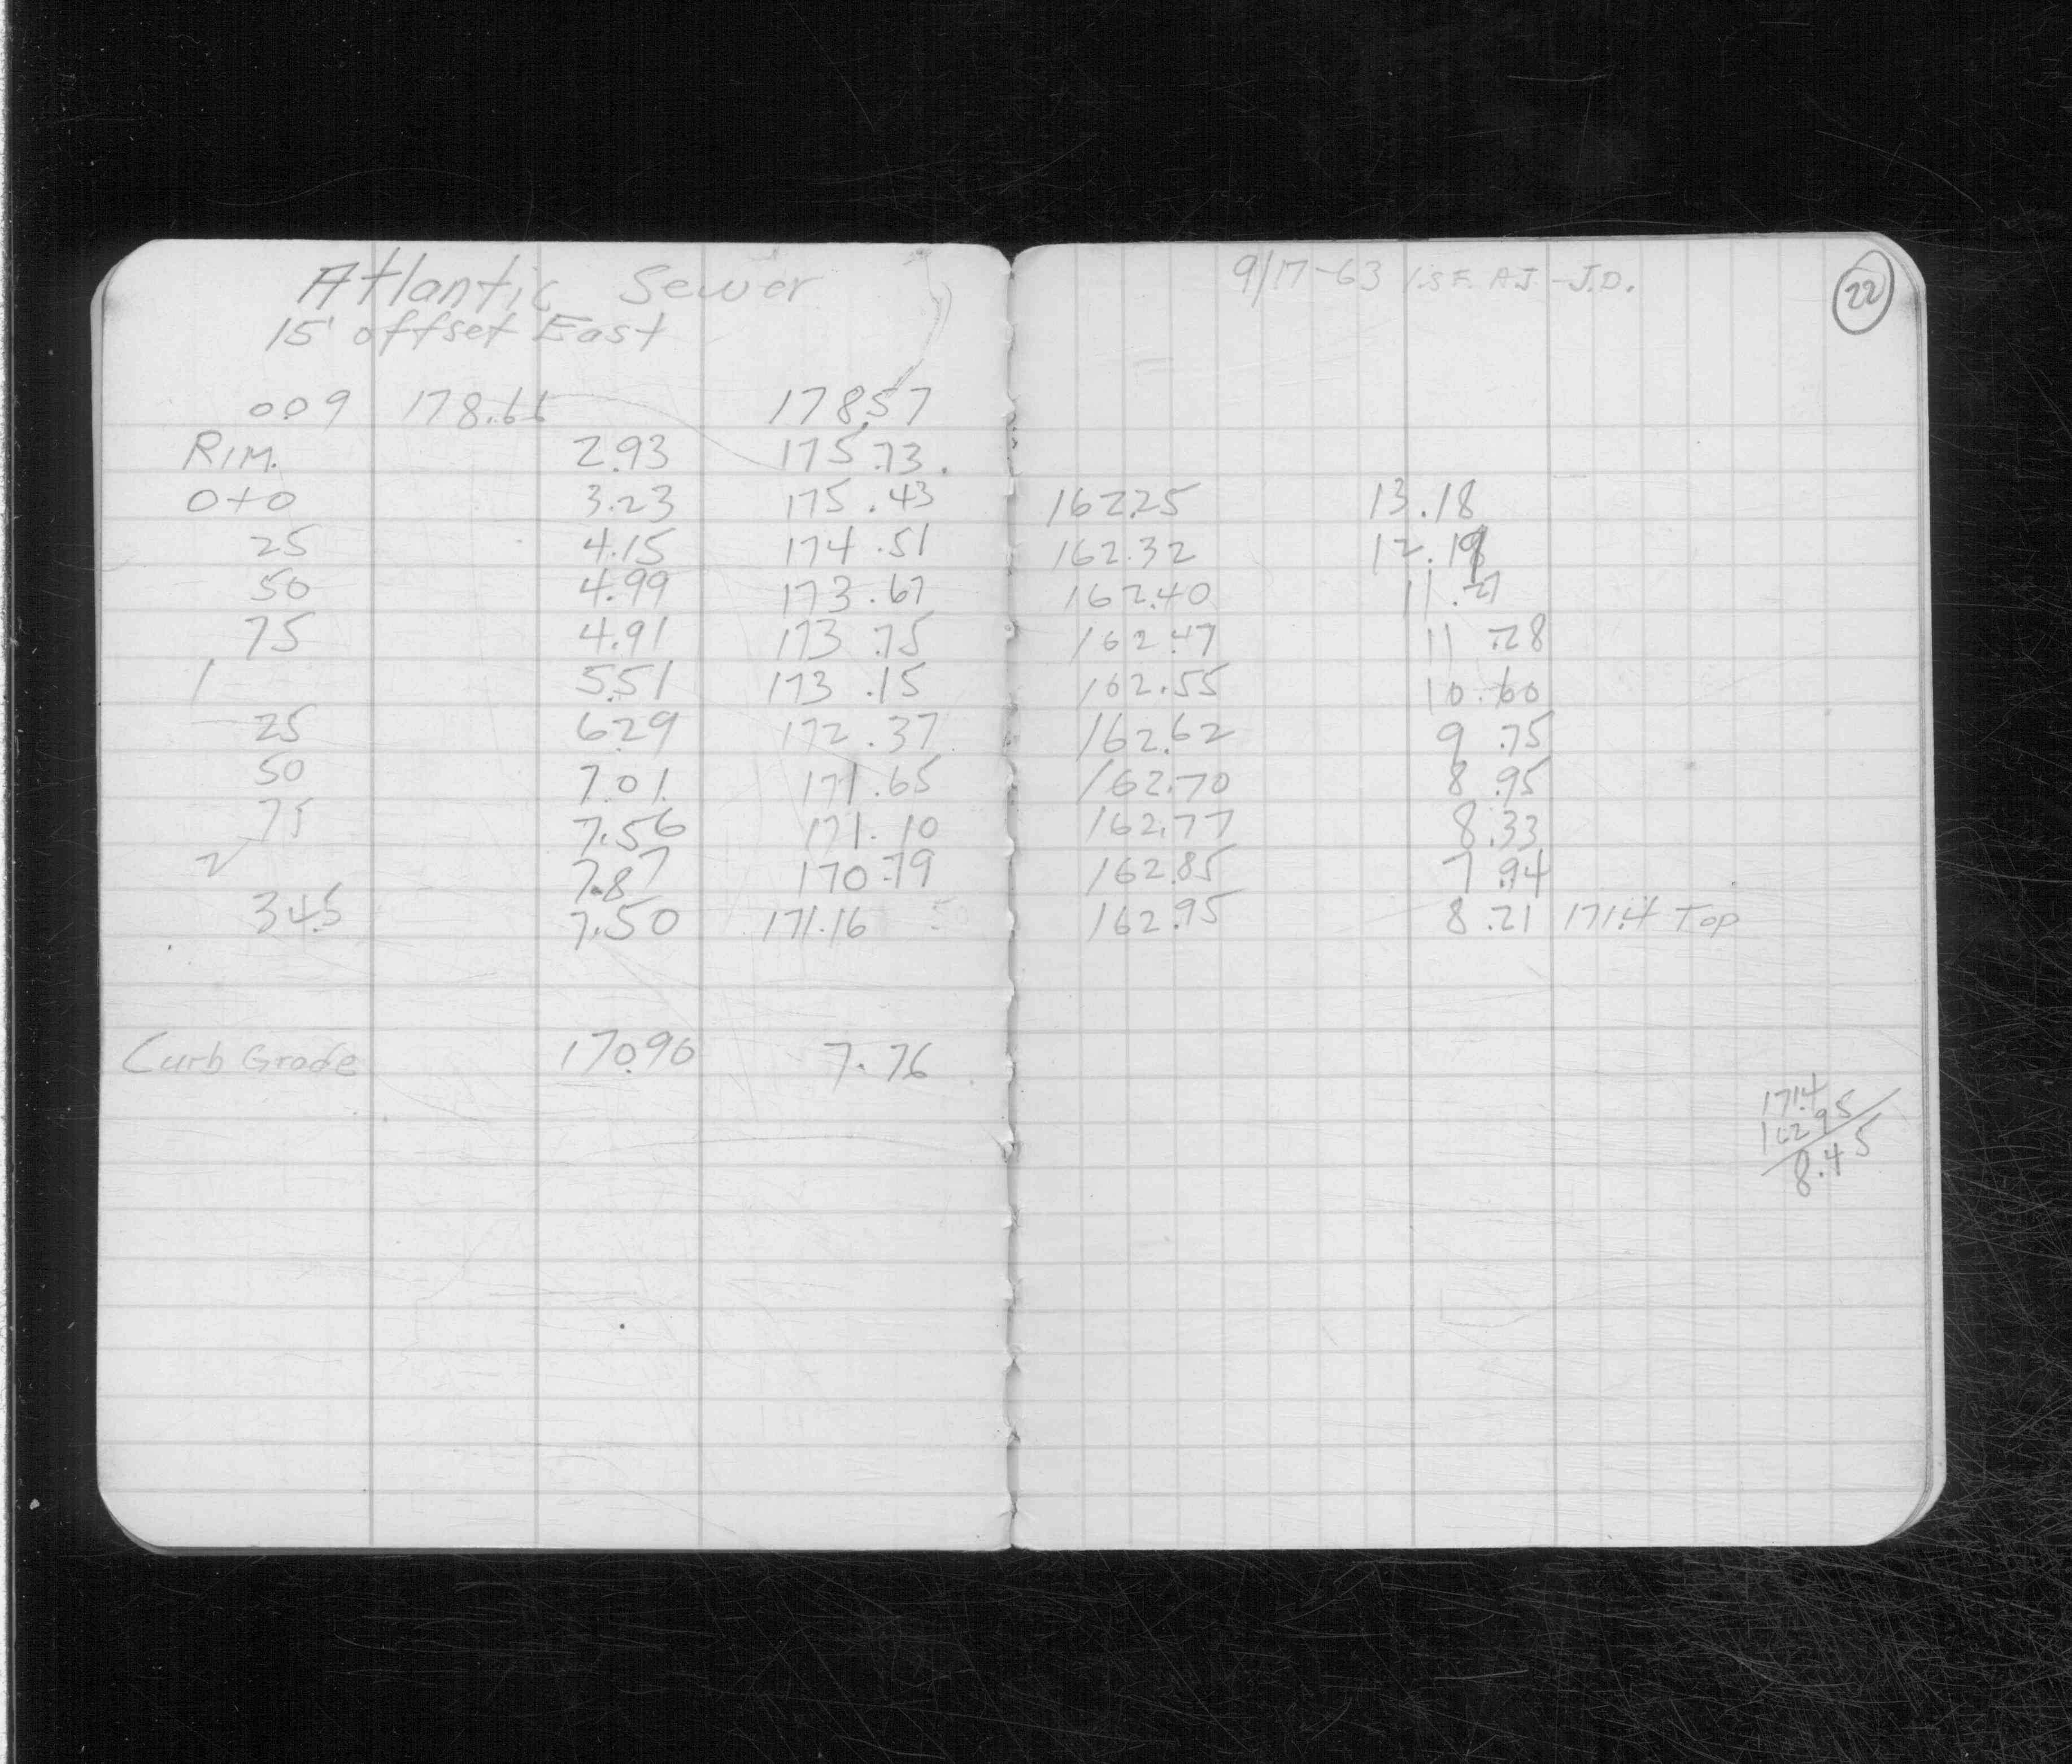 Atlantic Sewer
15' offset East
9/17-63 A.J - J.D.
22
0.09 178.66 178.57
RIM. 2.93 175.73
0+0 3.23 175.43 162.25 13.18
25 4.15 174.51 162.32 12.19
50 4.99 173.67 162.40 11.27
75 4.91 173.75 162.47 11.28
1 5.51 173.15 162.55 10.60
25 6.29 172.37 162.62 9.75
50 7.01 171.65 162.70 8.95
75 7.56 171.10 162.77 8.33
2 7.87 170.79 162.85 7.94
34.5 7.50 171.16 162.95 8.21 171.4 Top
Curb Grade 170.90 7.76
171.4
162 95
8.45